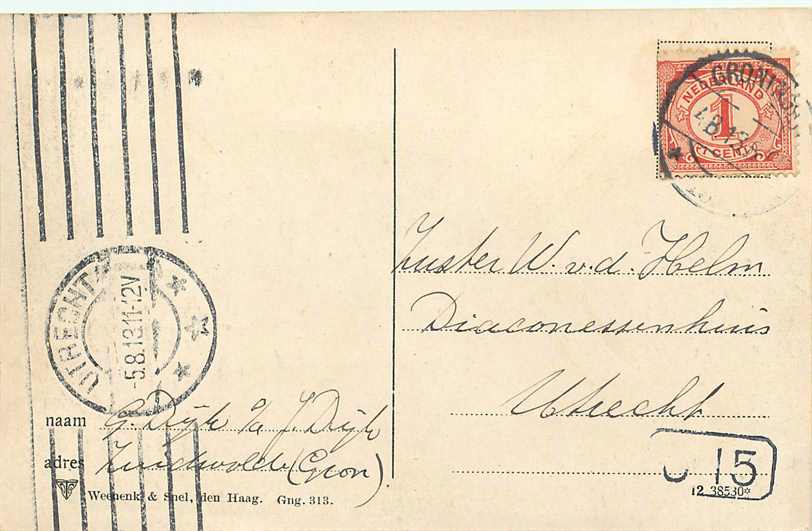 NEDERLAND
1
CENT
Zuster W. v. d. Helm
Diaconessenhuis
Utrecht
UTRECHT
-5.8.13 11-12V
naam G. Dijk o/a J. Dijk
adres Zuidwolde (Gron)
Weenenk & Snel, den Haag. Gng. 313.
15
12 38530*